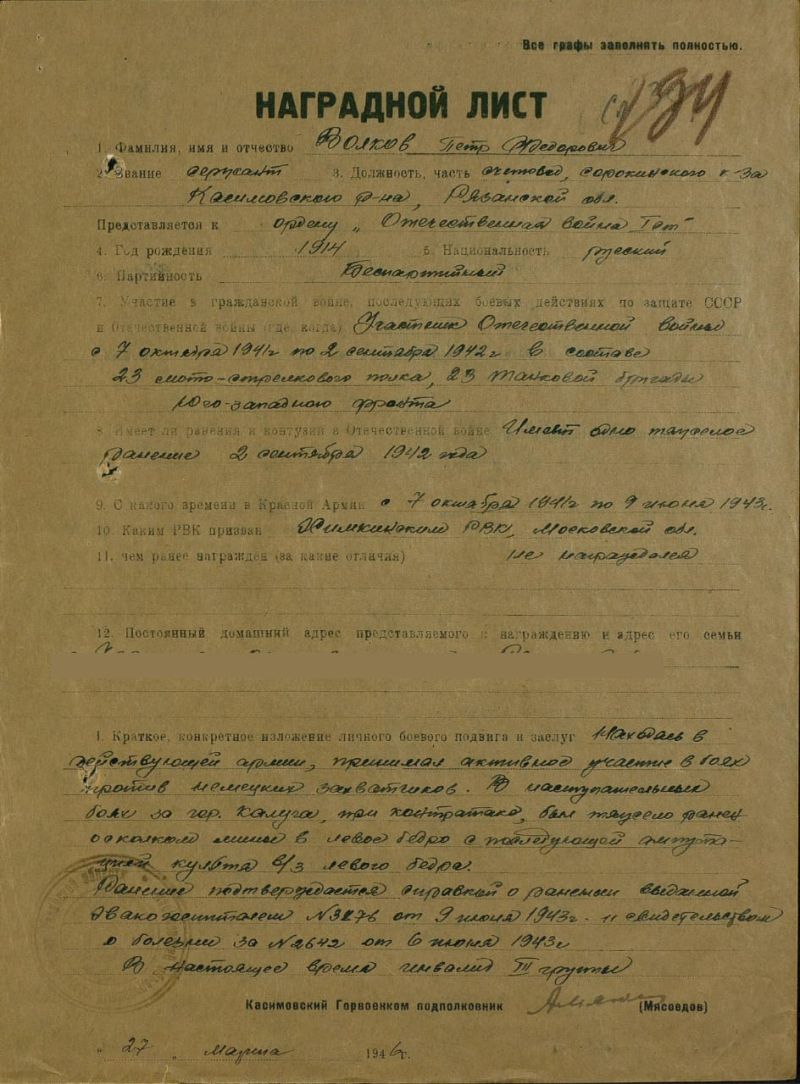 Все графы заполнять полностью.
НАГРАДНОЙ ЛИСТ
194
1. Фамилия, имя и отчество Волков Петр Федорович
2. Звание сержант 3. Должность, часть счетовод, сорокинского к-за
Касимовского р-на, Рязанской обл.
Представляется к ордену „Отечественная война Iст"
4. Год рождения 1914 5. Национальность русский
6. Партийность Беспартийный
7. Участие в гражданской войне, последующих боевых действиях по защите СССР
и Отечественной войны (где, когда) Участник Отечественной войны
с 7 октября 1941г по 2 сентября 1942г в составе
23 мото-стрелкового полка, 23 танковой бригады
Юго-западного фронта
8. Имеет ли ранения и контузии в Отечественной войне Имеет одно тяжелое
ранение 2 сентября 1942 года
9. С какого времени в Красной Армии с 7 октября 1941г по 9 июня 1943г.
10. Каким РВК призван Химкинским РВК, Московской обл.
11. чем ранее награжден (за какие отличия) не награждался
12. Постоянный домашний адрес представляемого к награждению и адрес его семьи
I. Краткое, конкретное изложение личного боевого подвига и заслуг Находясь в
действующей армии, принимал активное участие в боях
против немецких захватчиков. В наступательных
боях за гор. Калуга, при контратаке, был тяжело ранен
осколком мины в левое бедро с последующей ампута-
цией культя в/з левого бедра.
Ранение подтверждается справкой о ранении выданной
Эвакогоспиталем №3276 от 9 июня 1943г. и свидетельством
о болезни за №2642 от 6 июня 1943г
В настоящее время инвалид III группы
Касимовский Горвоенком подполковник (Мясоедов)
„27„ марта 1946г.